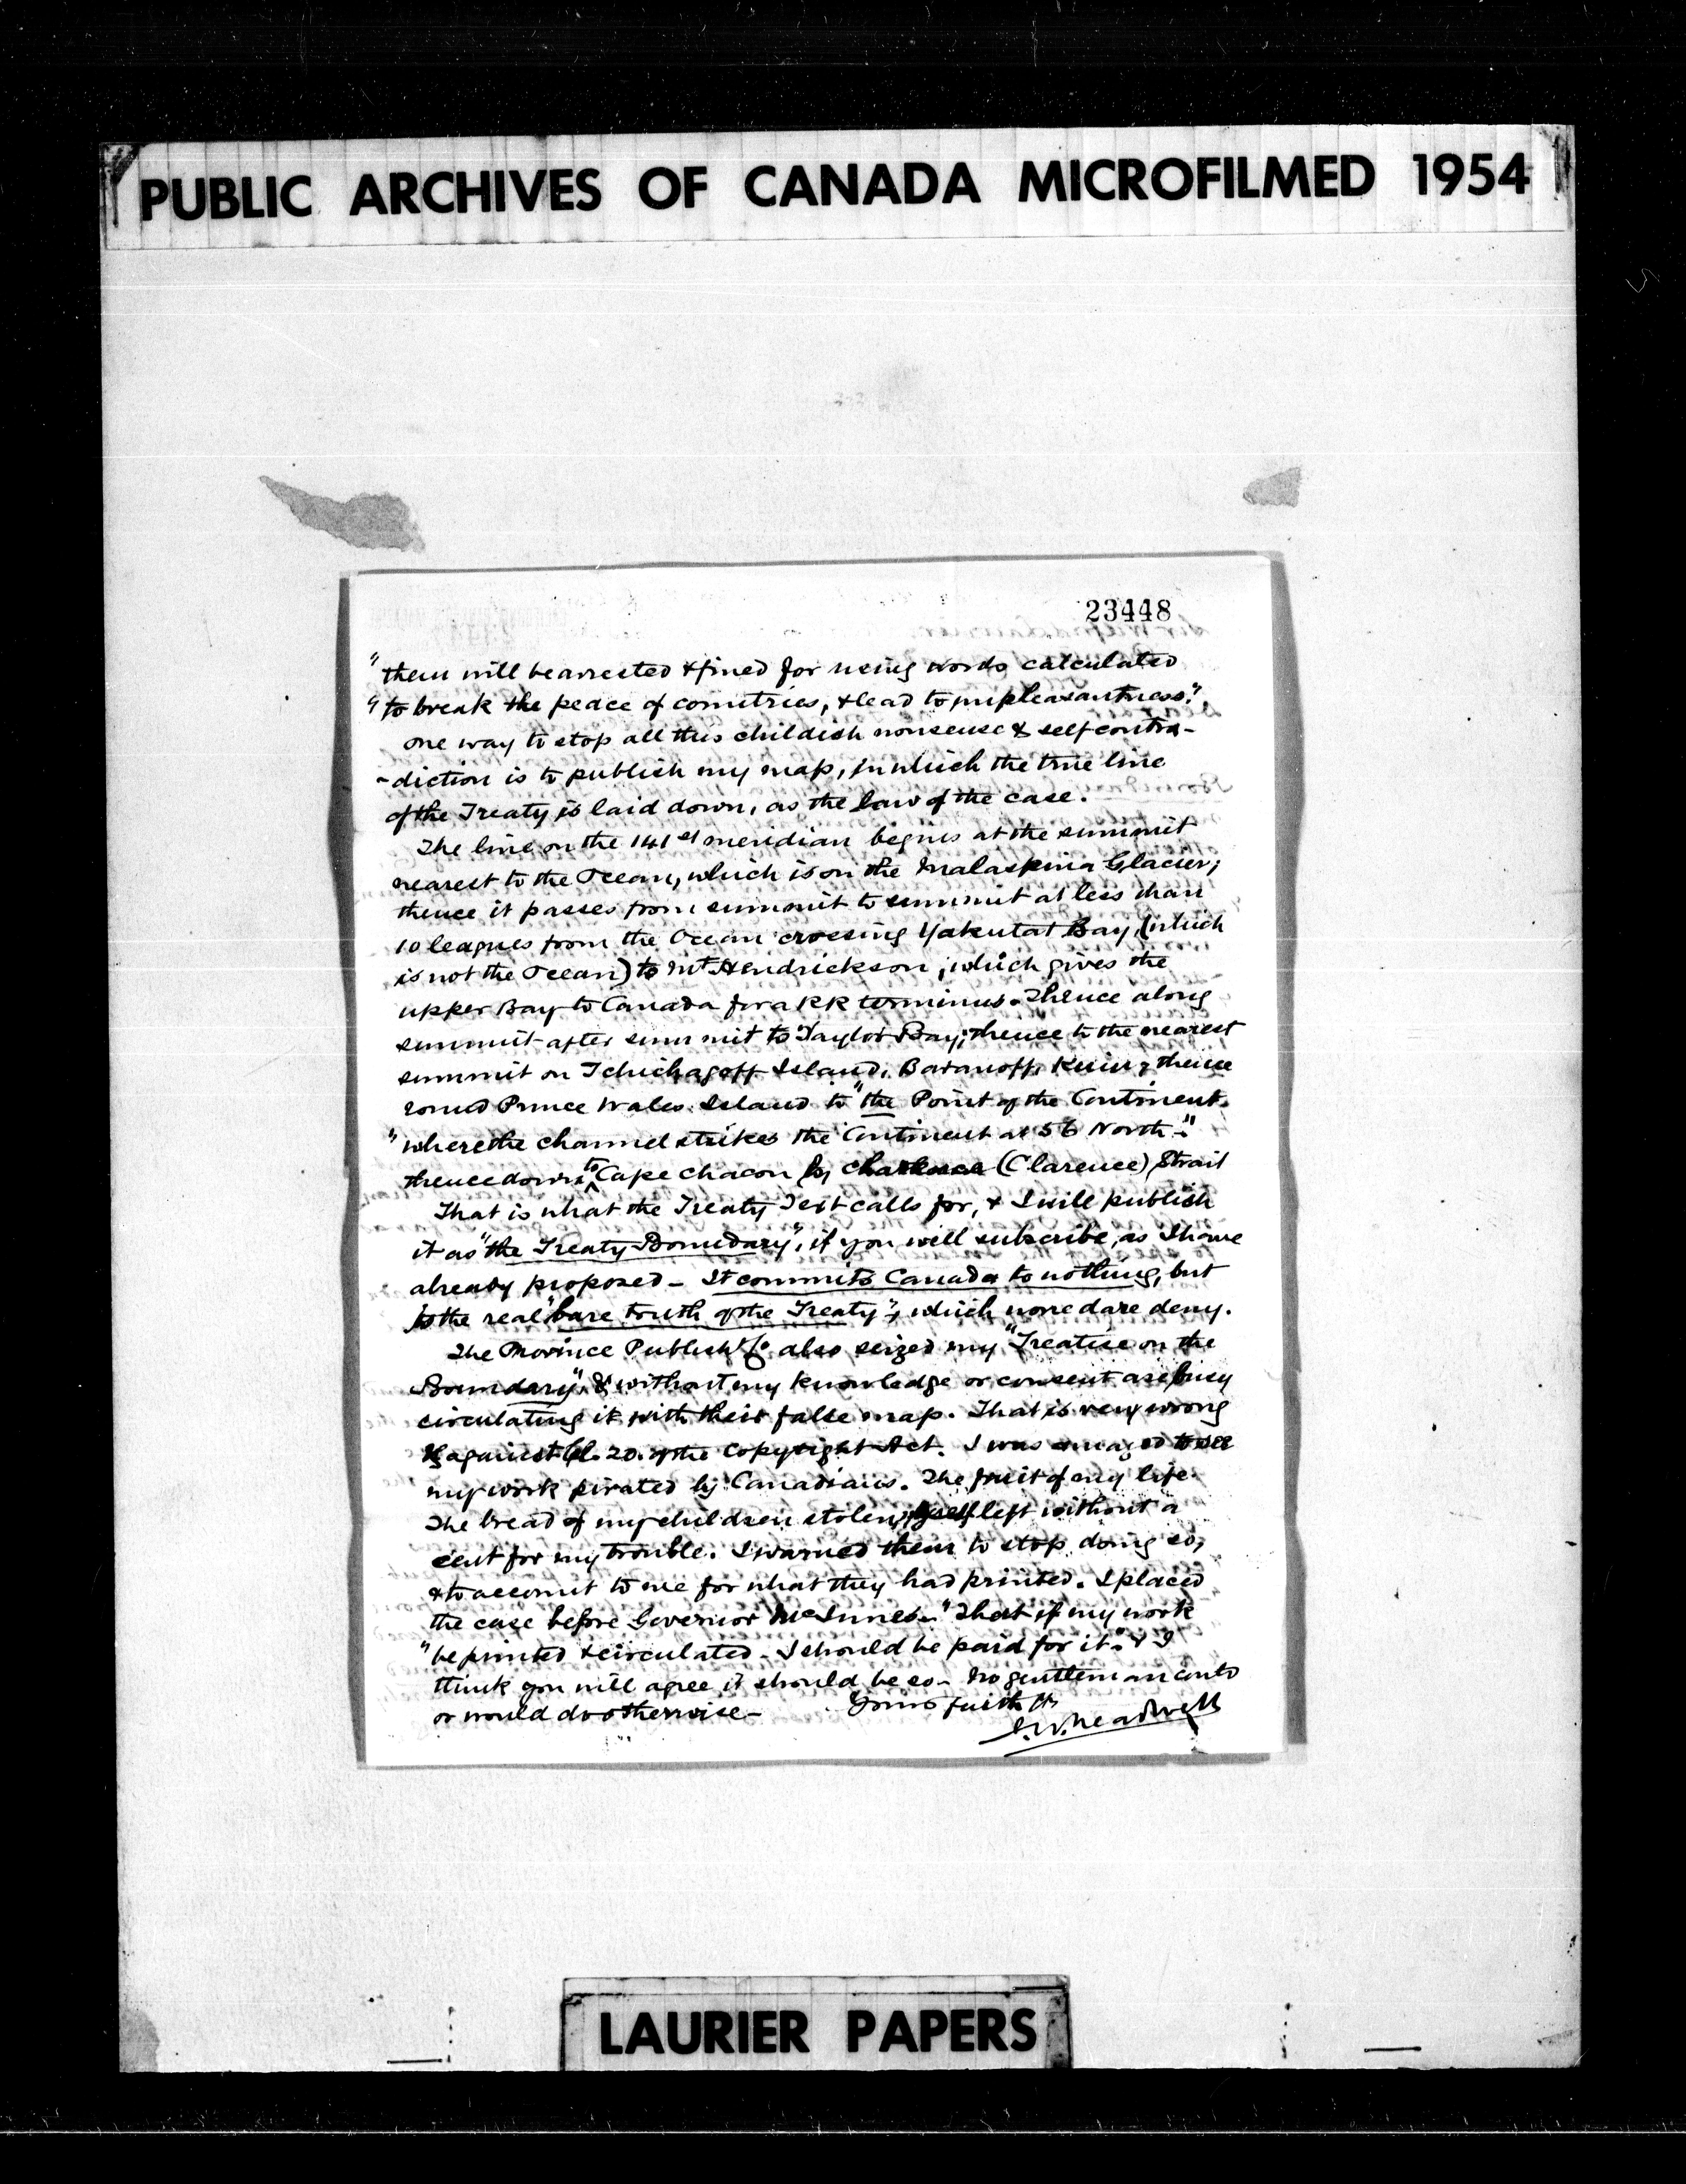 PUBLIC ARCHIVES OF CANADA MICROFILMED 1954
23448
"them will be arrested & fined for using words calculated
"to break the peace of countries, & lead to unpleasantness."
one way to stop all this childish nonsense & self contra-
-diction is to publish my map, in which the true line
of the Treaty is laid down, as the law of the case.
The line on the 141st meridian begins at the summit
nearest to the Ocean, which is on the Malaspina Glacier;
thence it passes from summit to summit at less than
10 leagues from the Ocean crossing Yakutat Bay, (which
is not the Ocean) to Mt Hendrickson, which gives the
upper Bay to Canada for a RR terminus. Thence along
summit after summit to Taylor Bay; thence to the nearest
summit on Tchichagoff Island, Baranoff, Kuiu, thence
round Prince Wales Island to "the Point of the Continent
"where the channel strikes the Continent at 56 North."
thence down to Cape Chacon by (Clarence) Strait
That is what the Treaty Text calls for, & I will publish
it as "the Treaty Boundary", if you will subscribe, as I have
already proposed - It commits Canada to nothing, but
to the real "bare truth of the Treaty", which none dare deny.
The Province Publish'g Co also seized my "Treatise on the
Boundary", & without my knowledge or consent are busy
circulating it with their false map. That is very wrong
& against Cl. 20. of the Copyright Act. I was amazed to see
my work pirated by Canadians. The fruit of my life.
The bread of my children stolen, left without a
cent for my trouble. I warned them to stop doing so,
& to account to me for what they had printed. I placed
the case before Governor McInnes. "That if my work
"be printed & circulated - I should be paid for it." & I
think you will agree it should be so - No gentleman could
or would do otherwise - Yours faithfly
LAURIER PAPERS